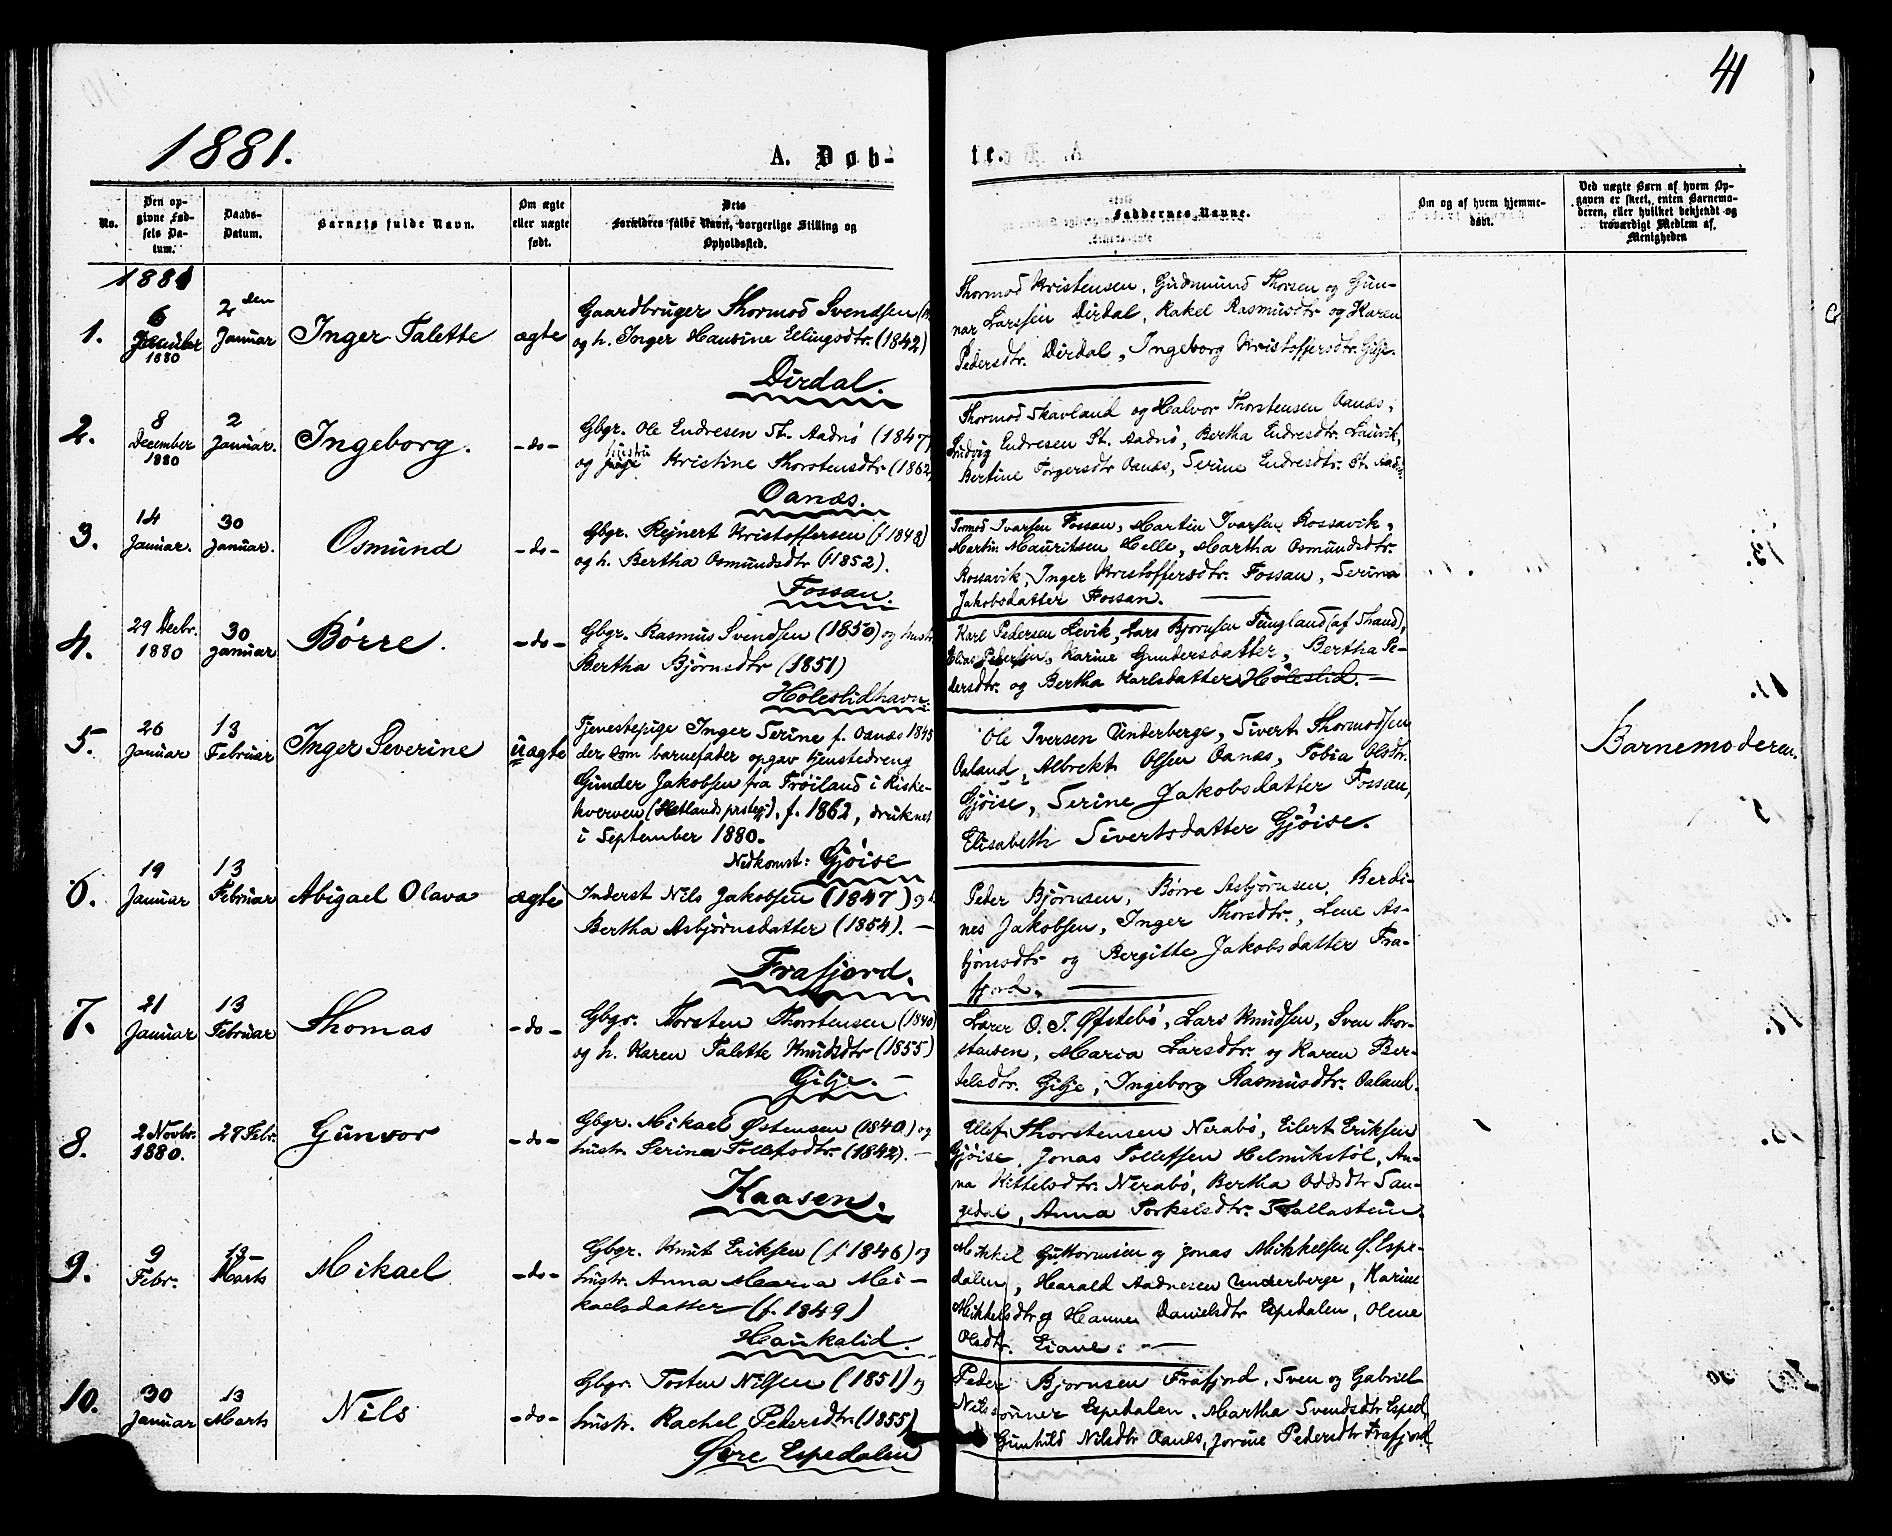 41
1881.
A. Døb-
te.
No.
Den op-
givne Fød-
sels Da-
tum.
Daabs-
Datum.
Barnets fulde Navn.
Om ægte
eller uægte
født.
Dets
Forældres fulde Navn, borgerlige Stilling og
Opholdssted.
Faddernes Navne.
Om og af hvem hjemme-
døbt.
Ved uægte Børn af hvem Op-
gaven er skeet, enten Barnemo-
deren, eller hvilket bekjendt og
troværdigt Medlem af
Menigheden
1881
1.
6
1880
2den
Januar
Inger Talette
ægte
Gaardbruger Thormod Svendsen
og h. Inger Hansine Ellingsdtr. (1842)
Dirdal.
Thormod Kristensen, Gudmund Thorsen og Gun-
nar Larssen Dirdal, Rakel Rasmusdtr og Karen
Pedersdtr. Dirdal, Ingeborg Kristoffersdtr. Gilje.
2.
8
December
1880
2
Januar.
Ingeborg.
-do-
Gbgr. Ole Endresen St. Aadnø (1847)
og hustru Kristine Thorstensdtr (1862)
Oanæs.
Thormod Skavland og Halvor Thorstensen Oanæs,
Ludvig Endresen St. Aadnø, Bertha Endresdtr. Lauvik,
Bertine Torgersdtr Oanæs, Serine Endresdtr. St. Aadnø
3.
14
Januar.
30
Januar.
Osmund
-do-
Gbgr. Rejnert Kristoffersen (f 1848)
og h. Bertha Osmundsdtr (1852).
Fossan.
Tormod Ivarsen Fossan, Martin Ivarsen Rossavik,
Martin Mauritsen Helle, Martha Osmundsdtr.
Rossavik, Inger Kristoffersdtr. Fossan, Serina
Jakobsdatter Fossan.
4.
29 Decbr.
1880
30
Januar
Børre.
-do-
Gbgr. Rasmus Svendsen (1850) og hustr.
Bertha Bjørnsdtr (1851)
Høleslidhavn.
Karl Pedersen Levik, Lars Bjørnsen Tengland (af Strand),
Elias Pedersen, Karine Gundersdatter, Bertha Pe-
dersdtr. og Bertha Karlsdatter Høleslid.
5.
26
Januar
13
Februar
Inger Severine
uægte
Tjenestepige Inger Serine f. Oanæs 1845
der som barnefader opgav tjenstedreng
Gunder Jakobsen fra Frøiland i Riske-
kverven (Hetlands prstegj), f. 1862, druknet
i September 1880.
Nedkomst: Gjøise
Ole Iversen Underberge, Sivert Thormodsen
Oaland, Albrekt Olsen Oanæs, Tobia Olsdtr.
Gjøise, Serine Jakobsdatter Fossan,
Elisabeth Sivertsdatter Gjøise.
Barnemoderen.
6.
19
Januar
13
Februar
Abigael Olava
ægte
Inderst Nils Jakobsen (1847) og h.
Bertha Asbjørnsdatter (1854).
Frafjord.
Peder Bjørnsen, Børre Asbjørnsen, Berdi-
nes Jakobsen, Inger Thorsdtr., Lene As-
bjørnsdtr og Bergitte Jakobsdatter Fra-
fjord.
7.
21
Januar
13
Februar
Thomas
-do-
Gbgr. Torsten Thorstensen (1840)
og h. Karen Talette Knudsdtr (1855)
Gilje.
Lærer O. T. Øfstebø, Lars Knudsen, Sven Thor-
stensen, Maria Larsdtr. og Karen Ber-
telsdtr. Gilje, Ingeborg Rasmusdtr. Oaland.
8.
2 Novbr.
1880.
27 Febr.
Gunvor
-do-
Gbgr. Mikael Østensen (1840) og
hustr. Serina Tollefsdtr. (1842).
Kaasen.
Ellef Thorstensen Nerabø, Eilert Eriksen
Gjøise, Jonas Tollefsen Helmikstøl, An-
na Kittelsdtr. Nerabø, Bertha Oddsdtr San-
gedal, Anna Torkelsdtr. Hallastein.
9.
9
Febr.
13
Marts
Mikael
-do-
Gbgr. Knut Eriksen (f 1846) og
hustr. Anna Maria Mi-
kaelsdatter (f. 1849)
Haukalid.
Mikkel Guttormsen og Jonas Mikkelsen Ø. Espe-
dalen, Harald Aadnesen Underberge, Karine
Mikkelsdtr og Hanne Danielsdtr Espedalen, Olene
Olsdtr. Eiane.
10.
30
Januar
13
Marts
Nils
-do-
Gbgr. Tosten Nilsen (1851) og
hustr. Rachel Pedersdtr. (1855)
Øvre Espedalen
Peder Bjørnsen Frafjord, Sven og Gabriel
Nilssønner Espedalen, Martha Svendsdtr Esped.
Gunhild Nilsdtr Oanæs, Jorine Pedersdtr Frafjord